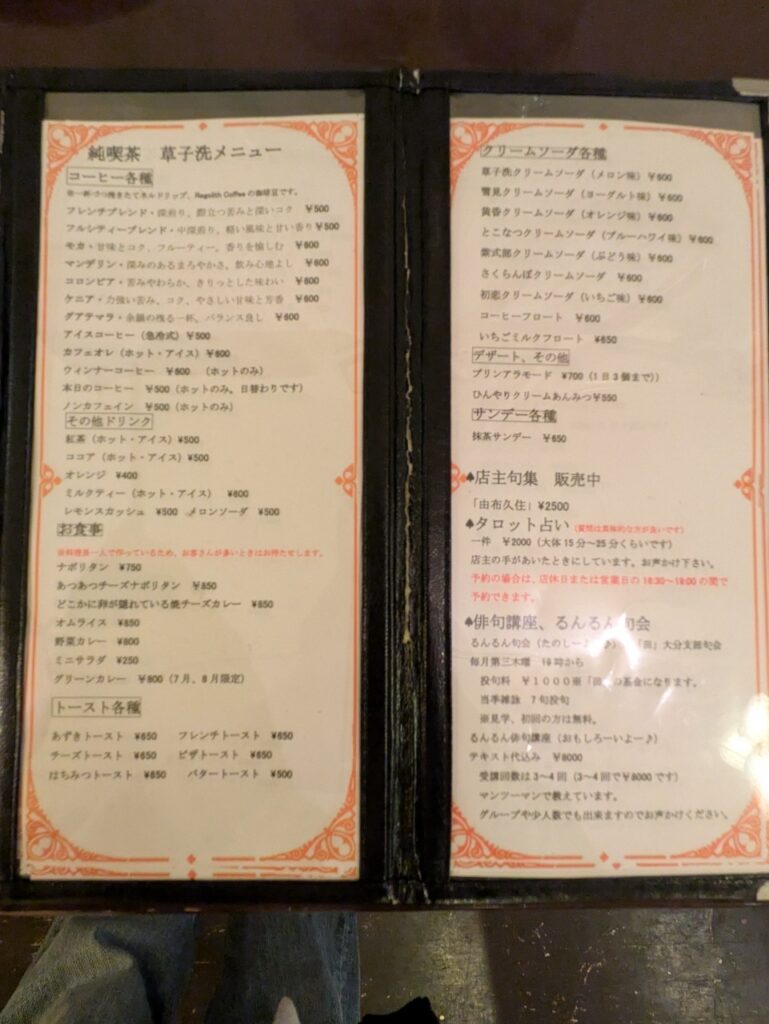 純喫茶　草子洗メニュー
コーヒー各種
フレンチブレンド・深煎り、際立つ苦みと深いコク　¥500
フルシティーブレンド・中深煎り、軽い風味と甘い香り¥500
モカ・甘味とコク、フルーティー。香りを愉しむ　¥600
マンデリン・深みのあるまろやかさ、飲み心地よし　¥600
コロンビア・苦みやわらか、きりっとした味わい　¥600
ケニア・力強い苦み、コク、やさしい甘味と芳香　¥600
グアテマラ・余韻の残る一杯、バランス良し　¥600
アイスコーヒー（急冷式）¥500
カフェオレ（ホット・アイス）¥600
ウィンナーコーヒー　¥600　（ホットのみ）
本日のコーヒー　¥500（ホットのみ。日替わりです）
ノンカフェイン　¥500（ホットのみ）
その他ドリンク
紅茶（ホット・アイス）¥500
ココア（ホット・アイス）¥500
オレンジ　¥400
ミルクティー（ホット・アイス）　¥600
レモンスカッシュ　¥500　メロンソーダ　¥500
お食事
※料理長一人で作っているため、お客さんが多いときはお待たせします。
ナポリタン　¥750
あつあつチーズナポリタン　¥850
どこかに卵が隠れている焼チーズカレー　¥850
オムライス　¥850
野菜カレー　¥800
ミニサラダ　¥250
グリーンカレー　¥800（7月、8月限定）
トースト各種
あずきトースト　¥650　フレンチトースト　¥650
チーズトースト　¥650　ピザトースト　¥650
はちみつトースト　¥650　バタートースト　¥500
クリームソーダ各種
草子洗クリームソーダ（メロン味）¥600
雪見クリームソーダ（ヨーグルト味）¥600
黄昏クリームソーダ（オレンジ味）¥600
とこなつクリームソーダ（ブルーハワイ味）¥600
紫式部クリームソーダ（ぶどう味）¥600
さくらんぼクリームソーダ　¥600
初恋クリームソーダ（いちご味）¥600
コーヒーフロート　¥600
いちごミルクフロート　¥650
デザート、その他
プリンアラモード　¥700（1日3個まで））
ひんやりクリームあんみつ¥550
サンデー各種
抹茶サンデー　¥650
♠店主句集　販売中
「由布久住」¥2500
♠タロット占い（質問は具体的な方が良いです）
一件　¥2000（大体15分～25分くらいです）
店主の手があいたときにしています。お声かけ下さい。
予約の場合は、店休日または営業日の18:30～19:00の間で
予約できます。
♠俳句講座、るんるん句会
るんるん句会（たのしーよ 大分支部句会
毎月第三木曜　19時から
投句料　¥1000※「 の基金になります。
当季雑詠　7句投句
※見学、初回の方は無料。
るんるん俳句講座（おもしろーいよー♪）
テキスト代込み　¥8000
受講回数は3～4回（3～4回で¥8000です）
マンツーマンで教えています。
グループや少人数でも出来ますのでお声かけください。